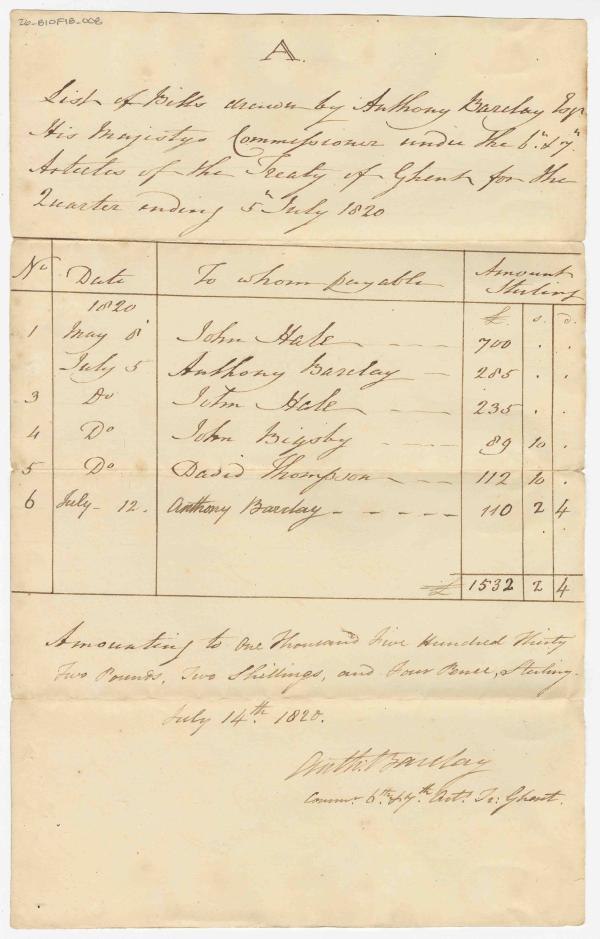 26-B10F18-008
A.
List of Bills drawn by Anthony Barclay Esqr
His Majestys Commissioner under the 6th & 7th
Articles of the Treaty of Ghent for the
Quarter ending 5th July 1820
No Date To whom payable Amount Sterling
1820 £ s. d.
1 May 8 John Hale 700 . .
July 5 Anthony Barclay 285 . .
3 Do John Hale 235 . .
4 Do John Bigsby 89 10 .
5 Do David Thompson 112 10 .
6 July 12. Anthony Barclay 110 2 4
£ 1532 2 4
Amounting to One Thousand Five Hundred Thirty
Two Pounds, Two Shillings, and Four Pence, Sterling.
July 14th. 1820.
Anth: Barclay
Commr. 6th & 7th. Arts. Tr: Ghent.